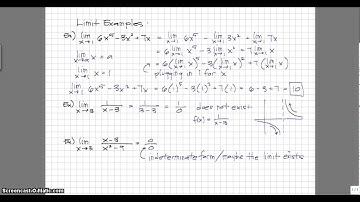 Limit Examples.
Ex) lim x→1 6x⁵ - 3x² + 7x = lim x→1 6x⁵ - lim x→1 3x² + lim x→1 7x
lim x→a x = a = 6 lim x→1 x⁵ - 3 lim x→1 x² + 7 lim x→1 x
lim x→1 x = 1 = 6(lim x→1 x)⁵ - 3(lim x→1 x)² + 7(lim x→1 x)
plugging in 1 for x
lim x→1 6x⁵ - 3x² + 7x = 6(1)⁵ - 3(1)² + 7(1) = 6 - 3 + 7 = 10
Ex) lim x→3 1/(x-3) = 1/(3-3) = 1/0 does not exist
f(x) = 1/(x-3)
Ex) lim x→3 (x-3)/(x²-9) = 0/0
indeterminate form / maybe the limit exists
Screencast-O-Matic.com